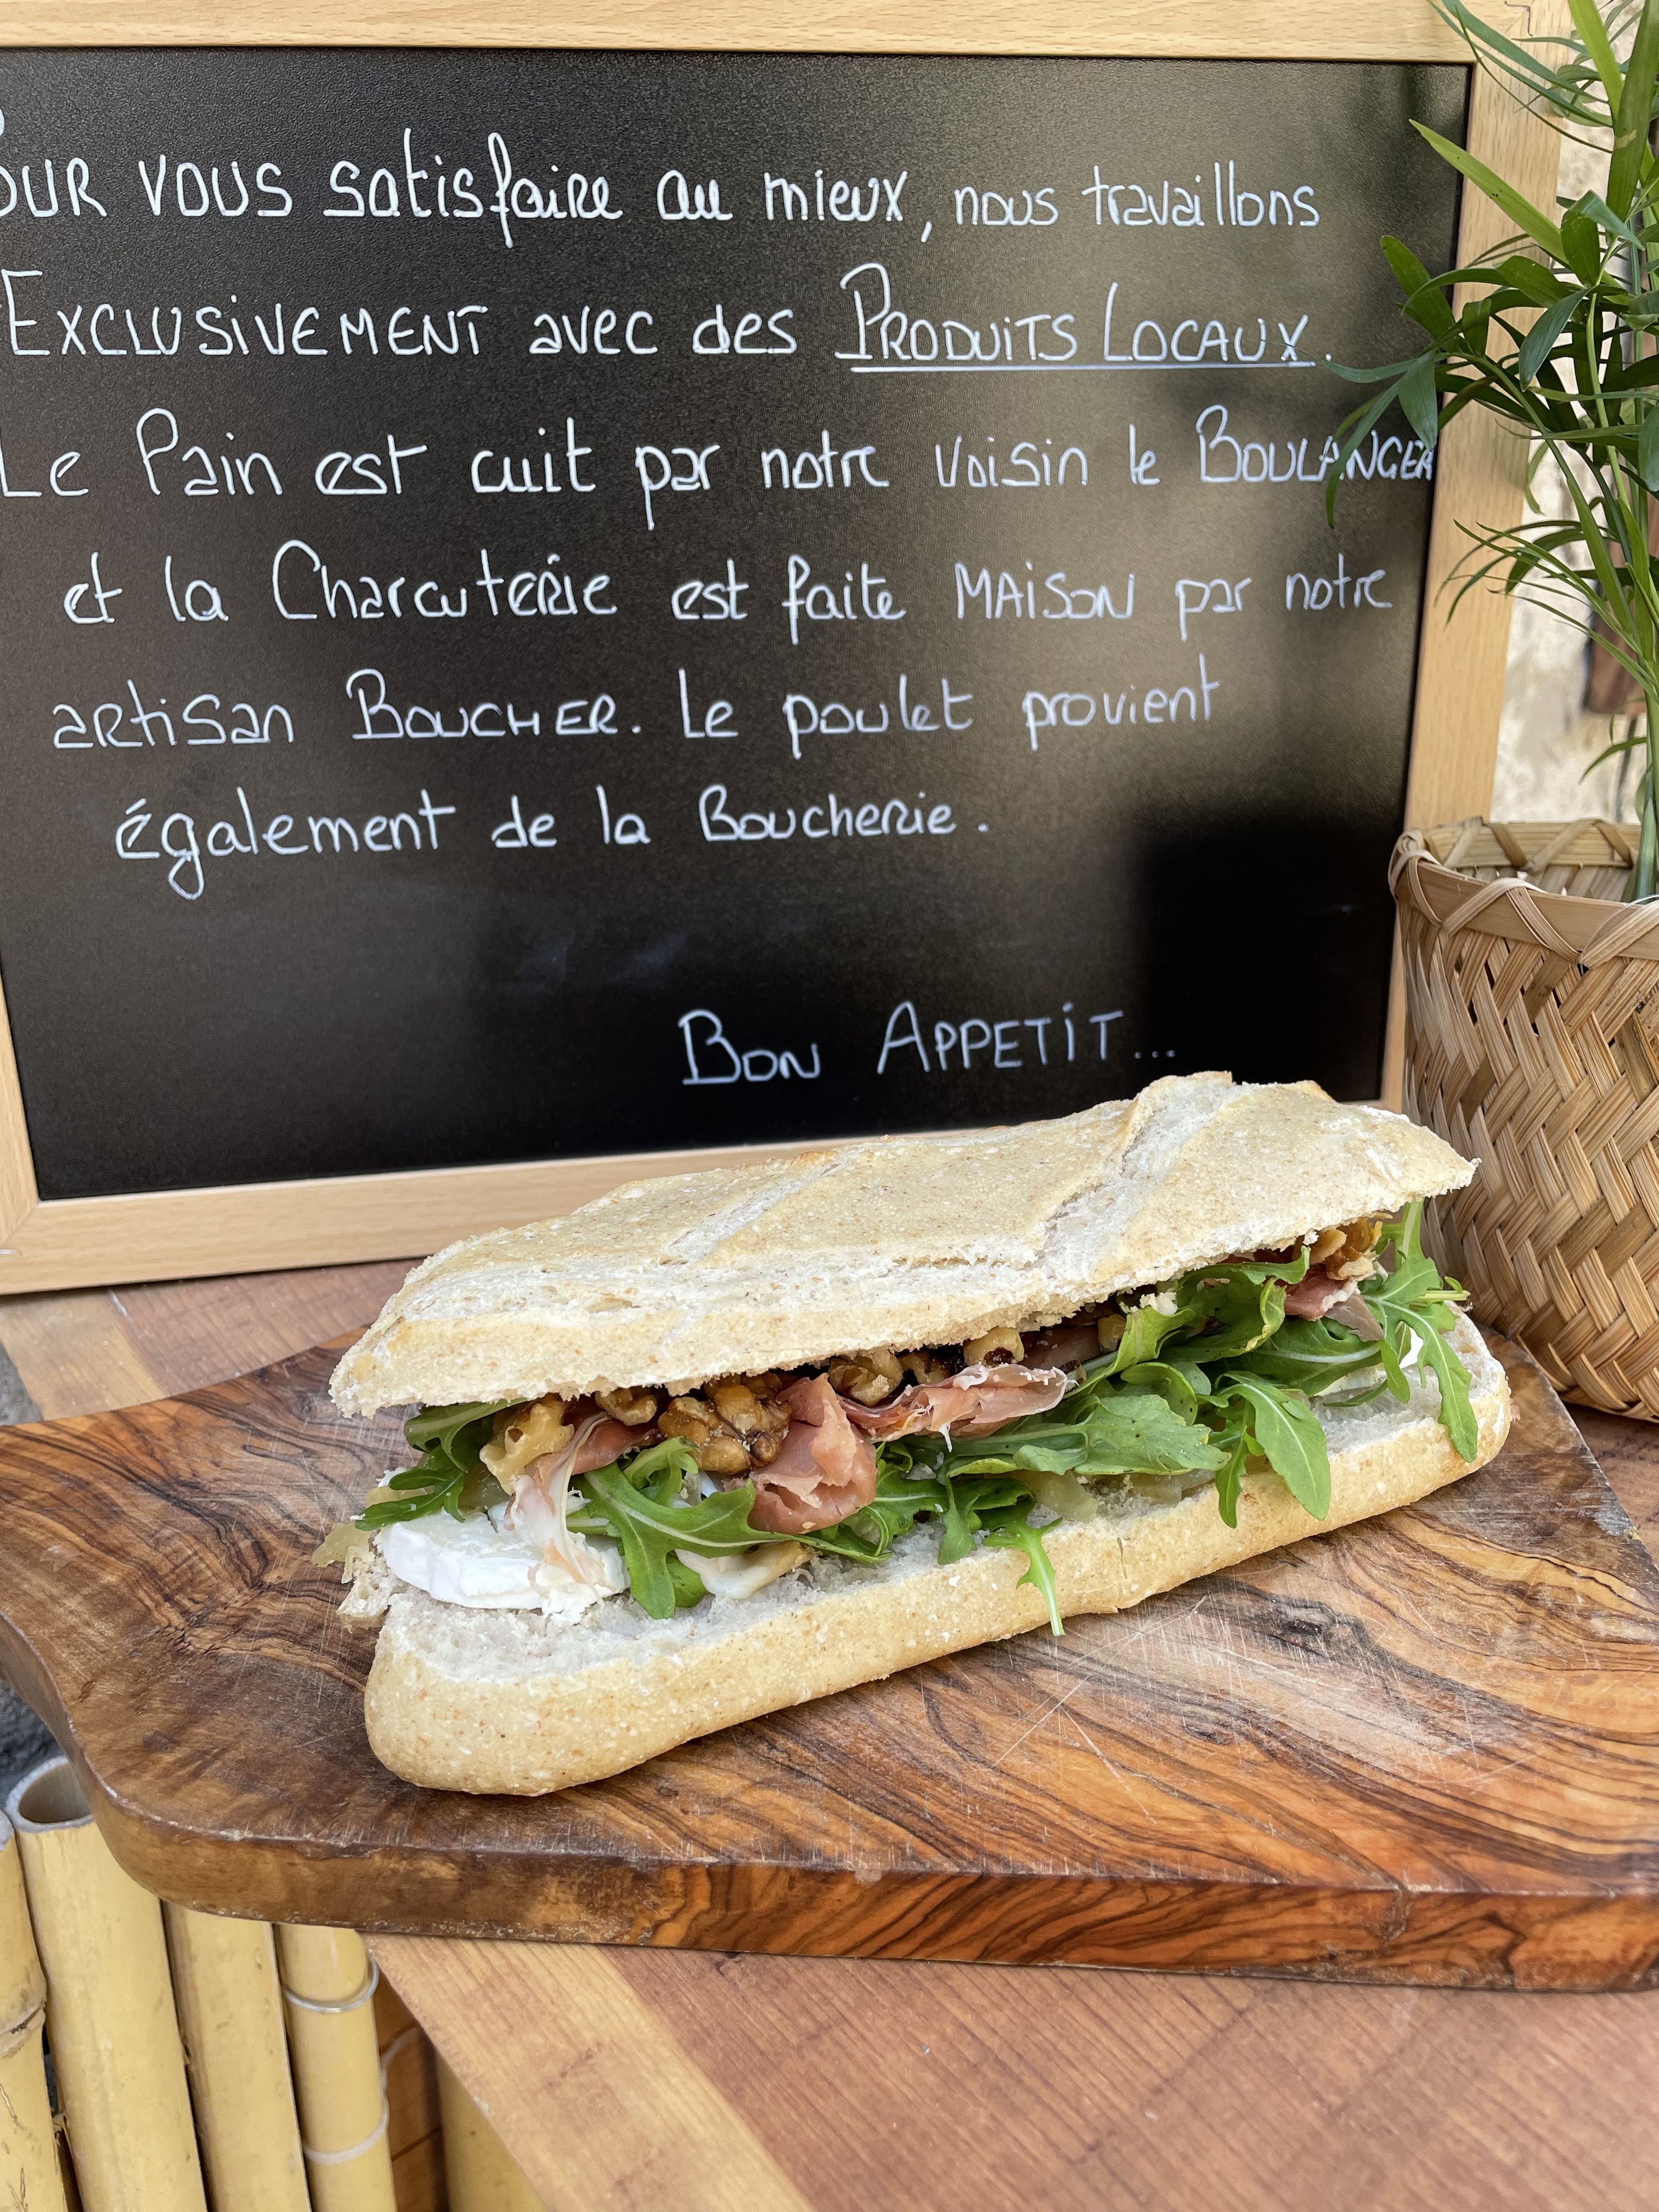 Pour vous satisfaire au mieux, nous travaillons
EXCLUSIVEMENT avec des PRODUITS LOCAUX.
Le Pain est cuit par notre voisin le BOULANGER
et la Charcuterie est faite MAISON par notre
artisan BOUCHER. Le poulet provient
également de la Boucherie.
BON APPETIT...